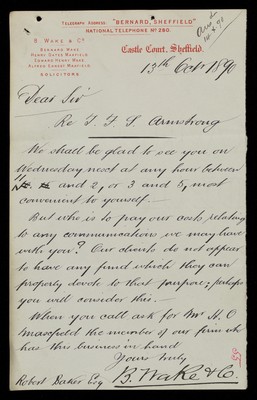 TELEGRAPH ADDRESS "BERNARD, SHEFFIELD"
NATIONAL TELEPHONE Nº 280.
B. WAKE & Cº
BERNARD WAKE.
HENRY OATES MAKFIELD.
EDWARD HENRY WAKE.
ALFRED ERNEST MAXFIELD.
SOLICITORS
Castle Court, Sheffield.
13th Octr 1890
Dear Sir
Re F. F. S. Armstrong
We shall be glad to see you on
Wednesday next at any hour between
11 and 2, or 3 and 5, most
convenient to yourself.
But who is to pay our costs relating
to any communications we may have
with you? Our clients do not appear
to have any fund which they can
properly devote to that purpose; perhaps
you will consider this.
When you call ask for Mr H. O
Maxfield the member of our firm who
has this business in hand
Yours truly
B. Wake & Co.
Robert Baker Esq